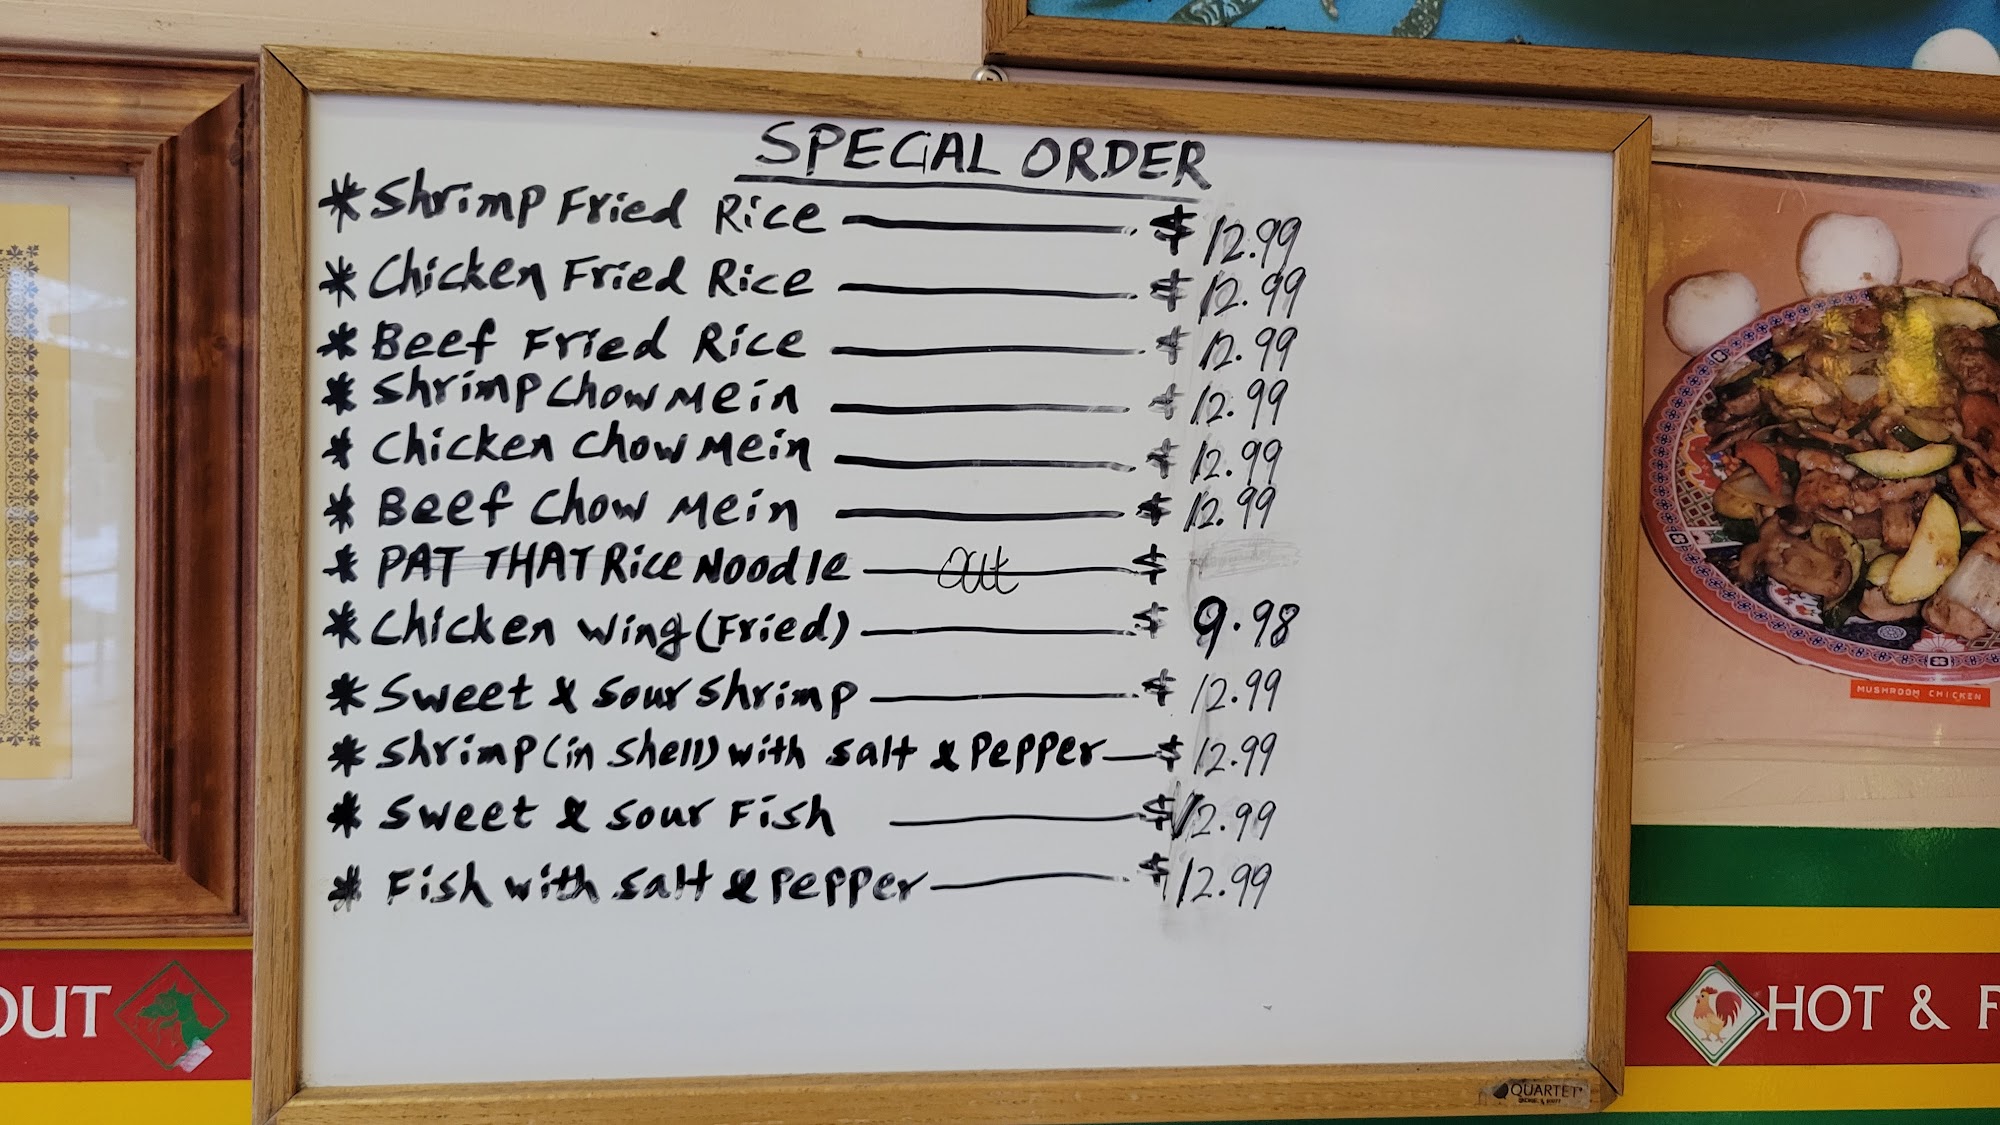 SPECIAL ORDER
* Shrimp Fried Rice — $ 12.99
* Chicken Fried Rice — $ 12.99
* Beef Fried Rice — $ 12.99
* Shrimp Chow Mein — $ 12.99
* Chicken Chow Mein — $ 12.99
* Beef Chow Mein — $ 12.99
* PAT THAT Rice Noodle — out — $
* Chicken Wing (Fried) — $ 9.98
* Sweet & Sour Shrimp — $ 12.99
* Shrimp (in Shell) with Salt & Pepper — $ 12.99
* Sweet & Sour Fish — $ 12.99
* Fish with Salt & Pepper — $ 12.99
MUSHROOM CHICKEN
OUT
HOT & F
QUARTET